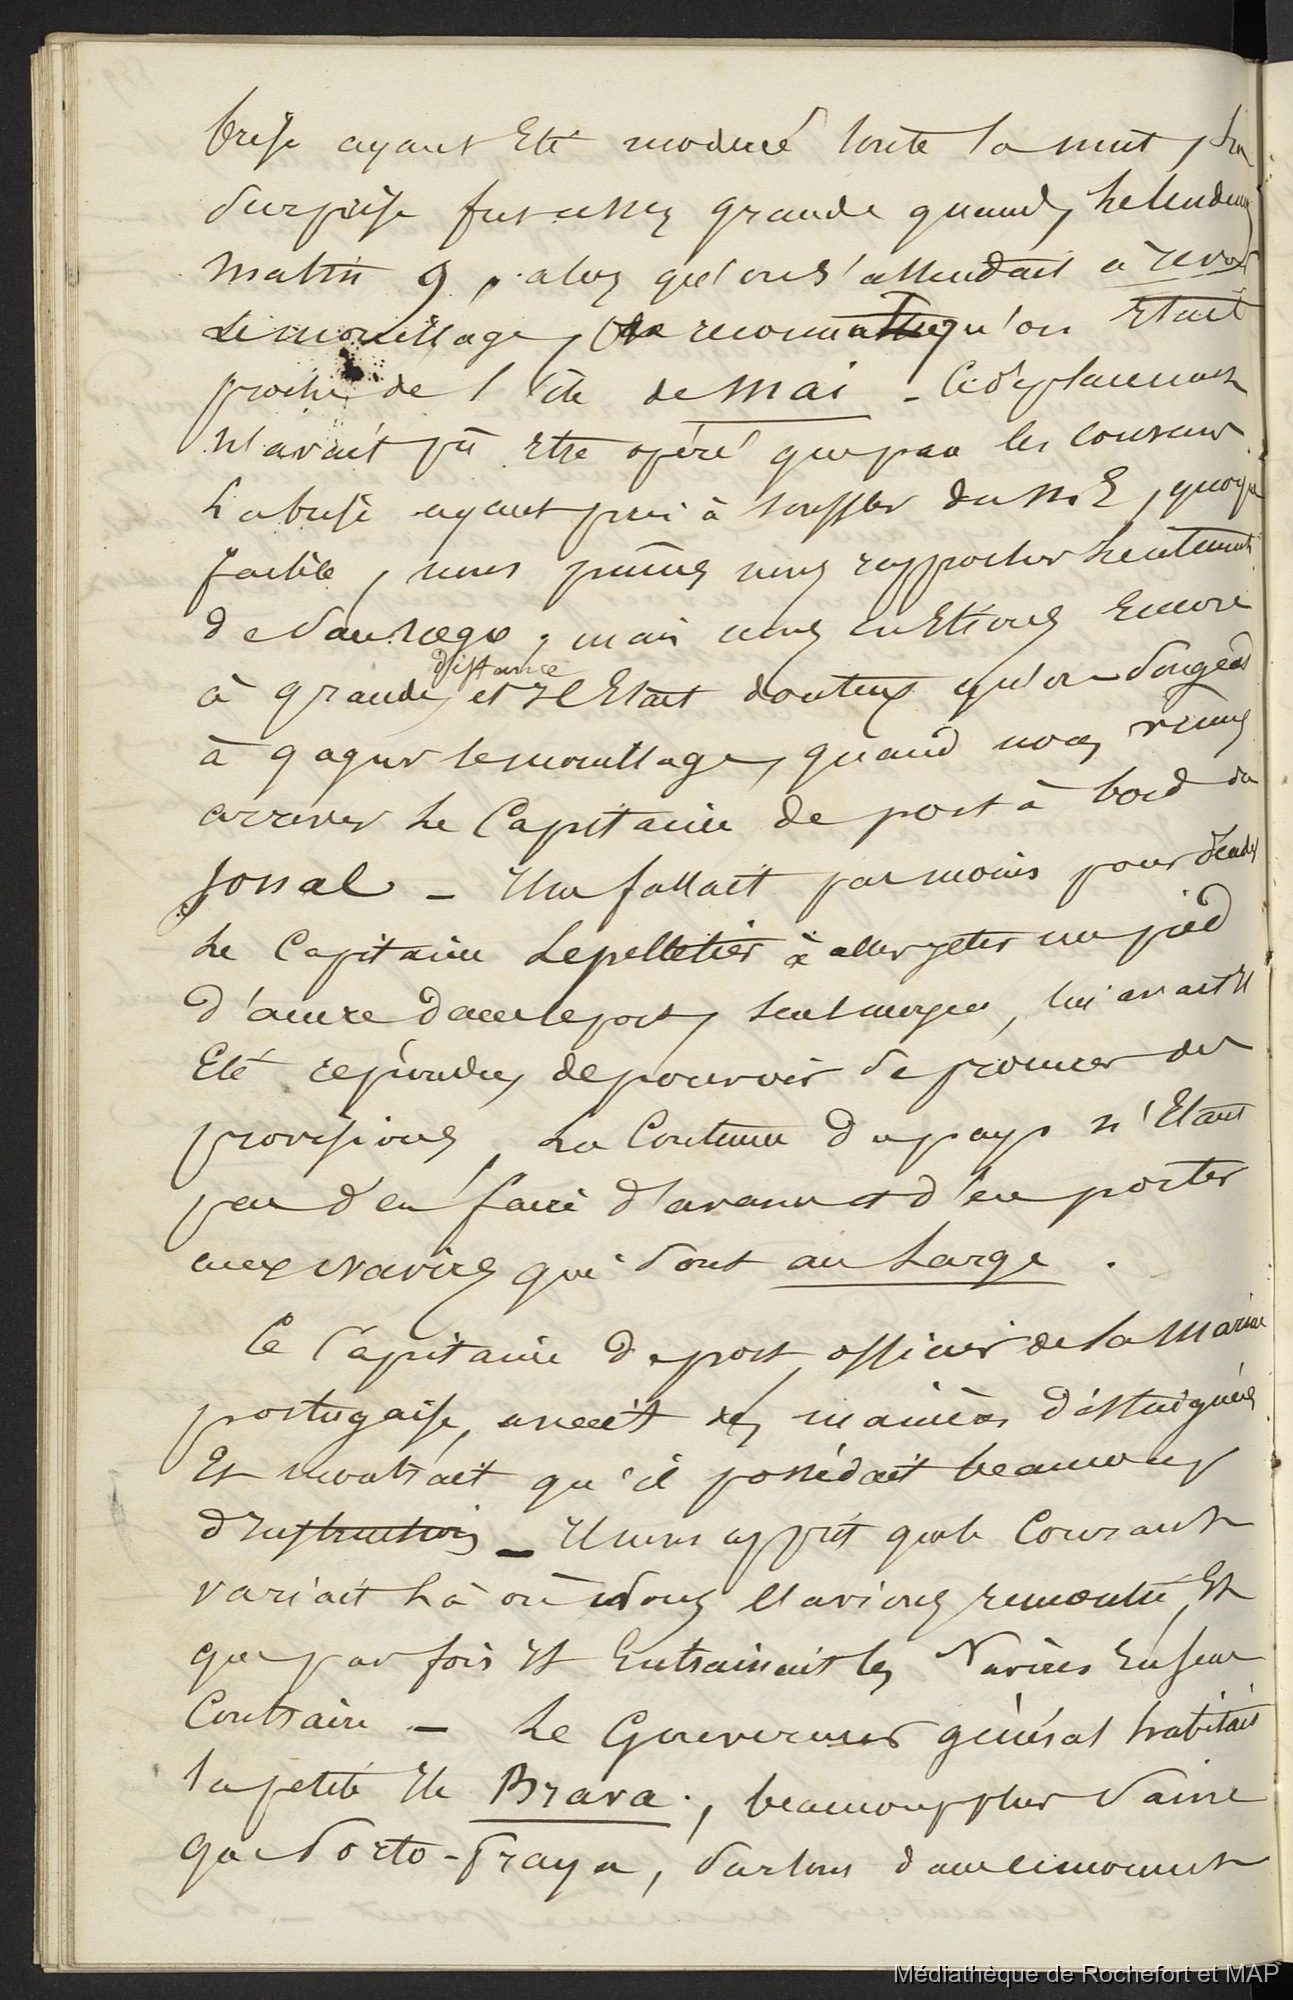 brise ayant Eté modéré toute la nuit, La
Surprise fut assez grande quand, Le lendemain
matin 9, alors qu'on s'attendait à revoir
Le mouillage, on reconnut qu'on Etait
proche de l'île de Mai – Ce déplacement
n'avait pû Etre opéré que par les courans
La brise ayant pris à souffler du NE, quoique
faible, nous pûmes nous rapprocher Lentement
de San Yago, mais nous en Etions Encore
à grande distance et Il Etait douteux qu'on Songeât
à gagner le mouillage, quand nous vîmes
arriver Le Capitaine de port à bord du
Jossal – Il ne fallait pas moins pour
Le Capitaine Lepelletier à aller jeter un pied
d'ancre dans le port, seul moyen, lui avait-Il
Eté répondu, de pouvoir Se procurer des
provisions, La Coutume du pays n'Etant
pas d'en faire d'avance et d'en porter
aux Navires qui Sont au Large.
Ce Capitaine de port, officier de la Marine
portugaise, avait des manières distinguées
Et montrait qu'il possédait beaucoup
d'Instruction – Il nous apprit que le Courant
variait Là où Nous l'avions rencontré, Et
que parfois Il Entrainait les Navires En sens
Contraire – Le Gouverneur général habitait
la petite Ile Brava., beaucoup plus Saine
que Porto-Praya, Surtout dans ce moment
Médiathèque de Rochefort et MAP